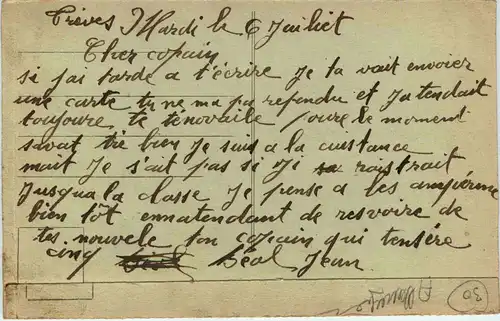 Trèves Mardi le 6 Juillet
Cher copain
si jai tardé a t'écrire je ta vait envoier
une carte tu ne ma pa repondu et Jatendait
toujoure te ténovaile poure le moment
savat trè bien je suis a la cuistance
mait je s'ait pas si Ji raistrait
Jusqua la classe Je pense a les
bien tôt enmatendant de resvoire de
tes nouvele ton copain qui tensére
cinq Séal Jean
30